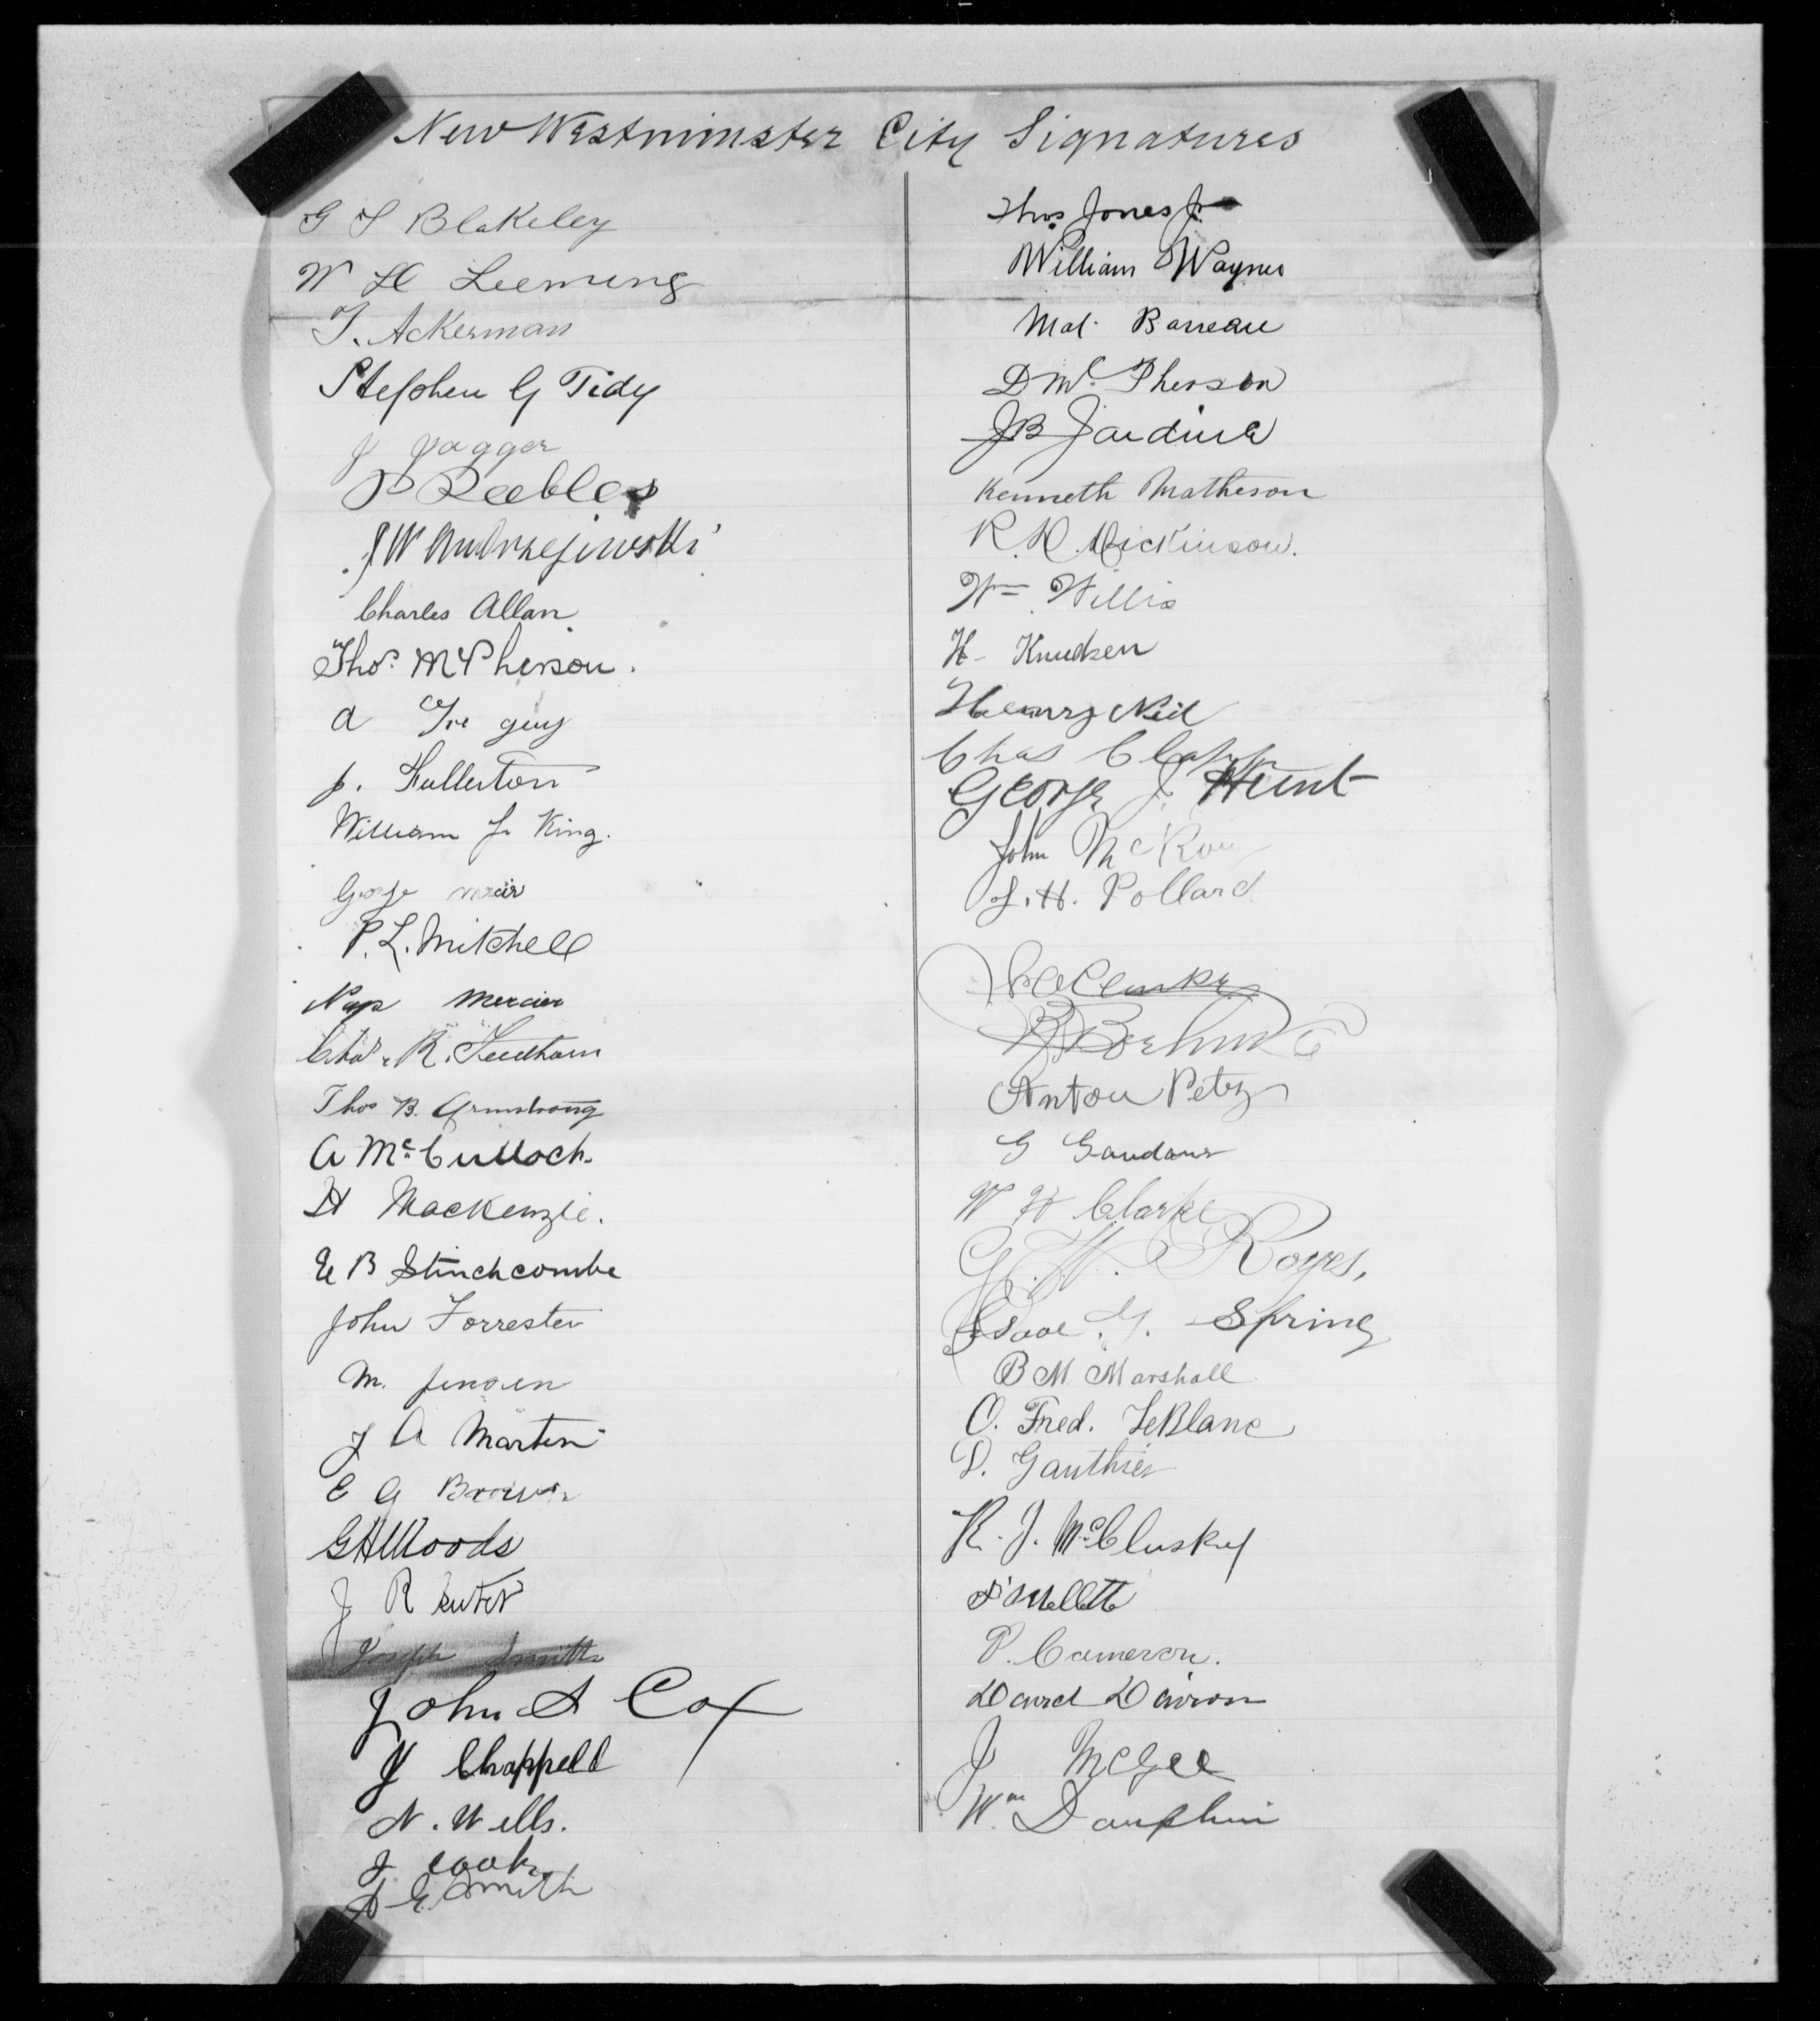 New Westminster City Signatures
G S Blakeley
W H Leeming
T. Ackerman
Stephen G Tidy
J Jagger
P Peebles
J W Andrzejewski
Charles Allan
Thos. McPherson.
A
J. Fullerton
William J. King.
George
P. L. Mitchell
Nap Mercier
Chas. R.
Thos B. Armstrong
A McCulloch.
H Mackenzie.
E B Stinchcombe
John Forrester
M. Jensen
J A Martin
E G Brown
G H Woods
J R
Joseph Smith
John A Cox
J Chappell
N. Wells.
J Cook
A E Smith
Thos Jones Jr
William Waynes
Barreau
D McPherson
J B Jardine
Kenneth Matheson
R. D. Dickinson.
Wm Willis
H- Knudsen
Henry Neil
Chas Clapp
George J. Hunt
John
Pollard
Anton Petz
G Gaudaur
W H Clarke
G. W. Royes,
Spring
B M Marshall
O. Fred. LeBlanc
D. Gauthier
R. J. McCluskey
P. Cameron.
David
J McGee
Wm Dauphin